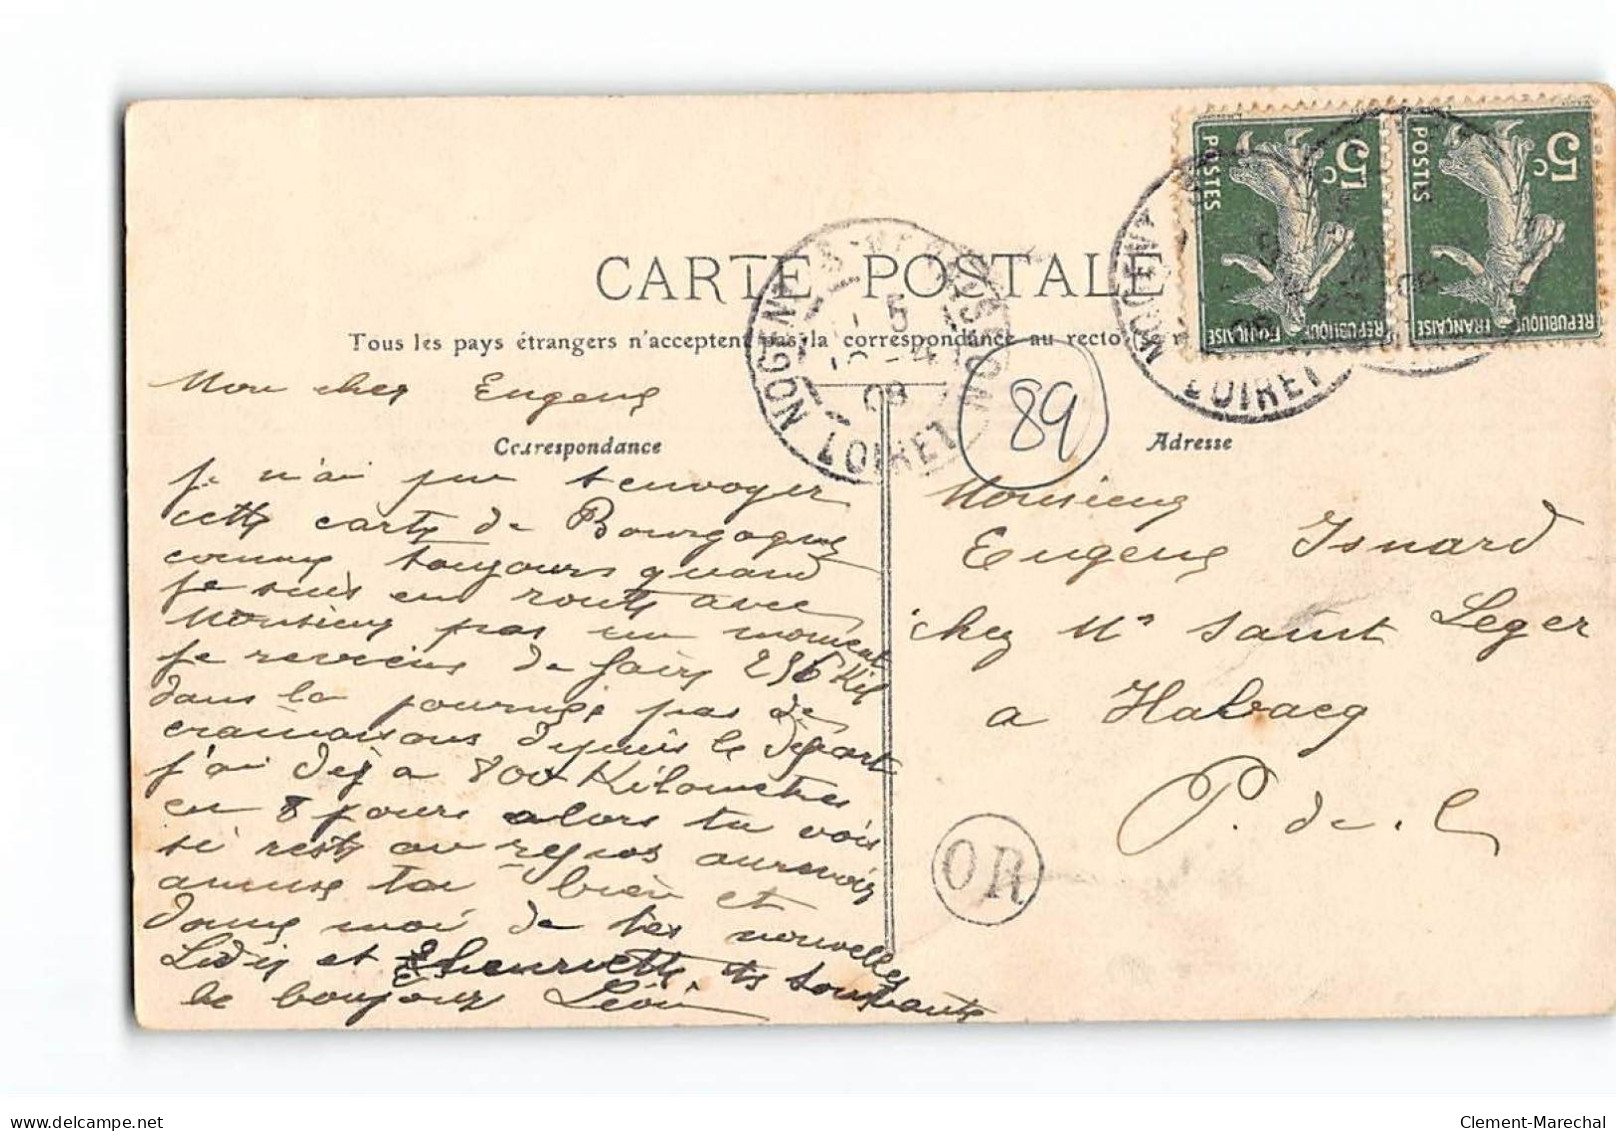 CARTE POSTALE
Tous les pays étrangers n'acceptent pas la correspondance au recto
Correspondance
Adresse
Mon cher Eugene
je n'ai pu t envoyer
cette carte de Bourgogne
comme toujours quand
je suis en route avec
Monsieur pas un moment
je reviens de faire 256 Kil
dans la journée pas de
depuis le départ
j'ai déjà 800 Kilometres
en 8 jours alors tu vois
si reste au repos aurevoir
amuse toi bien et
donne moi de tes nouvelles
et henriette te souhaite
le bonjour Léon
Monsieur
Eugene Isnard
chez Mr Saint Leger
a Habacq
P. de. C
89
OR
NOGENT S-VERNISSON
5
08
LOIRET
NOGENT
LOIRET
5c
POSTES
REPUBLIQUE FRANÇAISE
5c
POSTES
REPUBLIQUE FRANÇAISE
delcampe.net
Clement-Marechal